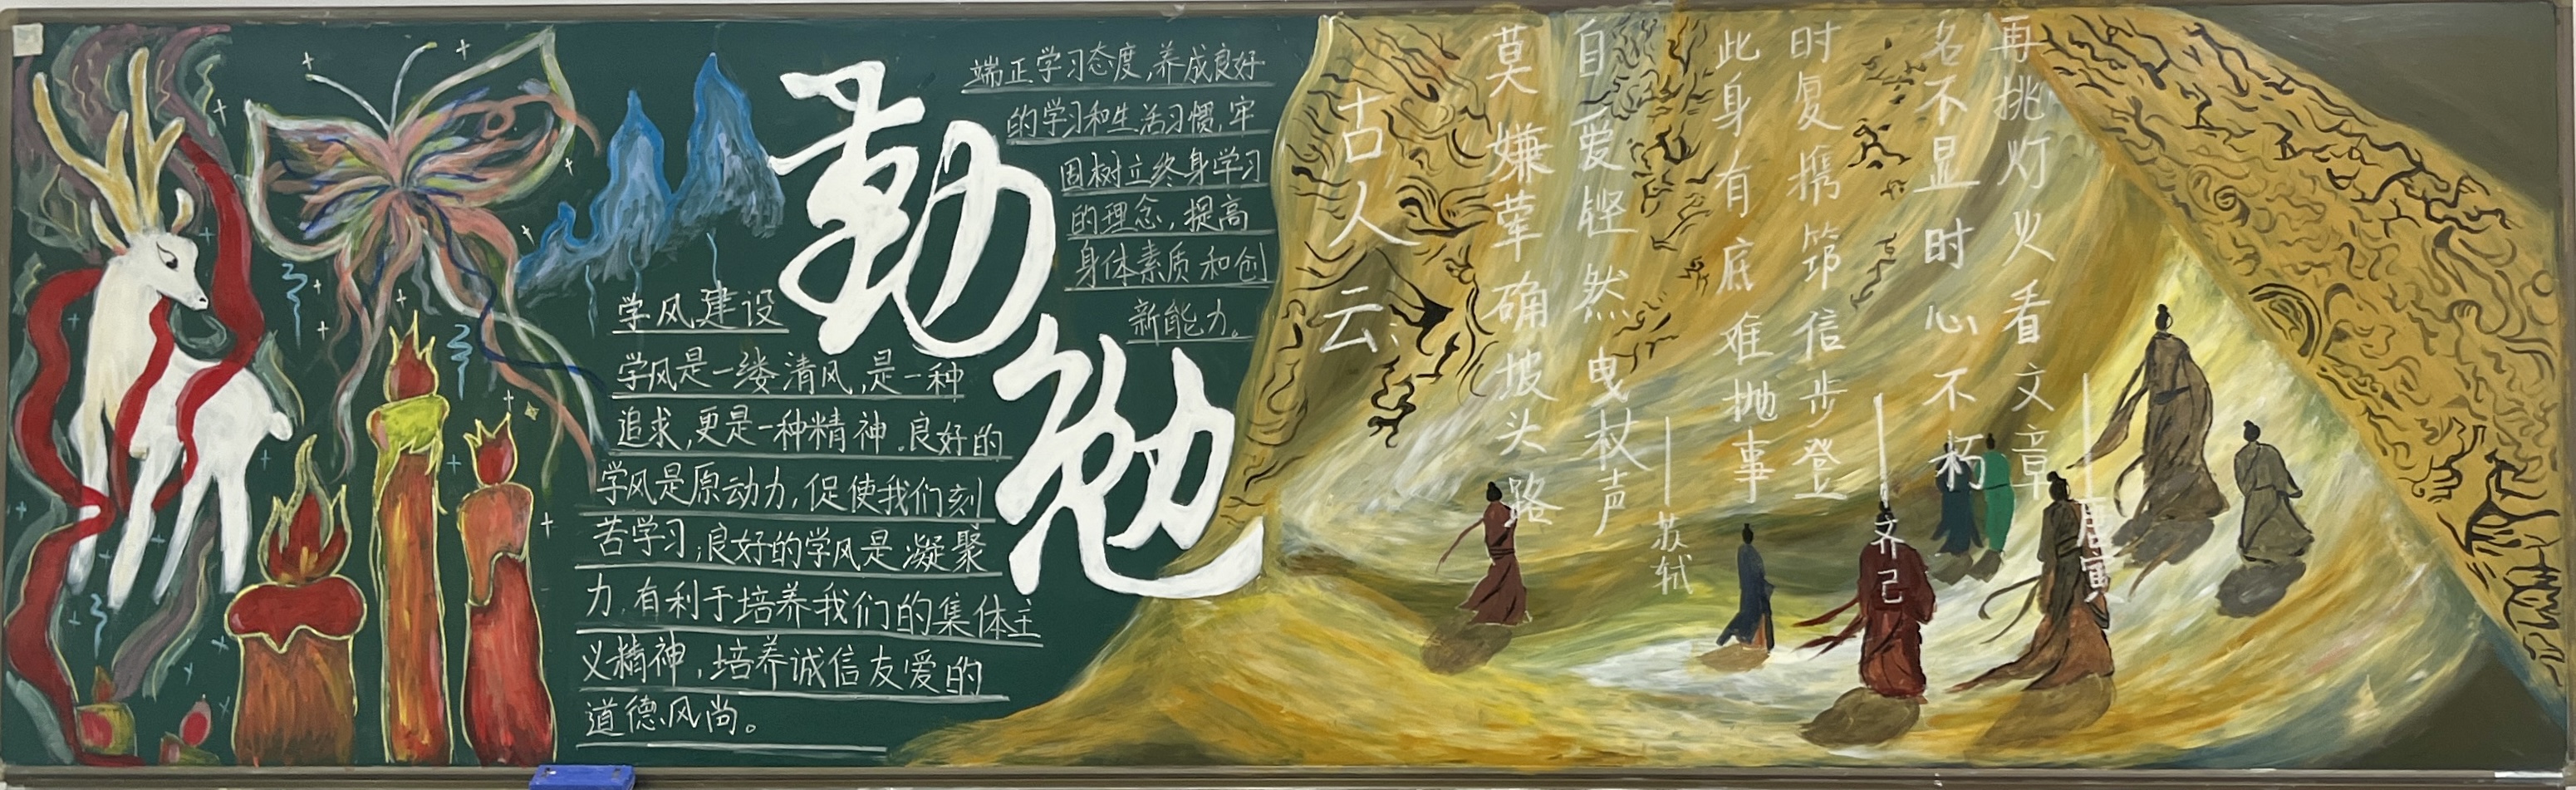 勤勉
端正学习态度,养成良好
的学习和生活习惯,牢
固树立终身学习
的理念,提高
身体素质和创
新能力。
学风建设
学风是一缕清风,是一种
追求,更是一种精神。良好的
学风是原动力,促使我们刻
苦学习;良好的学风是凝聚
力,有利于培养我们的集体主
义精神,培养诚信友爱的
道德风尚。
古人云:
莫嫌荦确坡头路
自爱铿然曳杖声
——苏轼
此身有底难抛事
时复携筇信步登
——齐己
名不显时心不朽
再挑灯火看文章
——唐寅